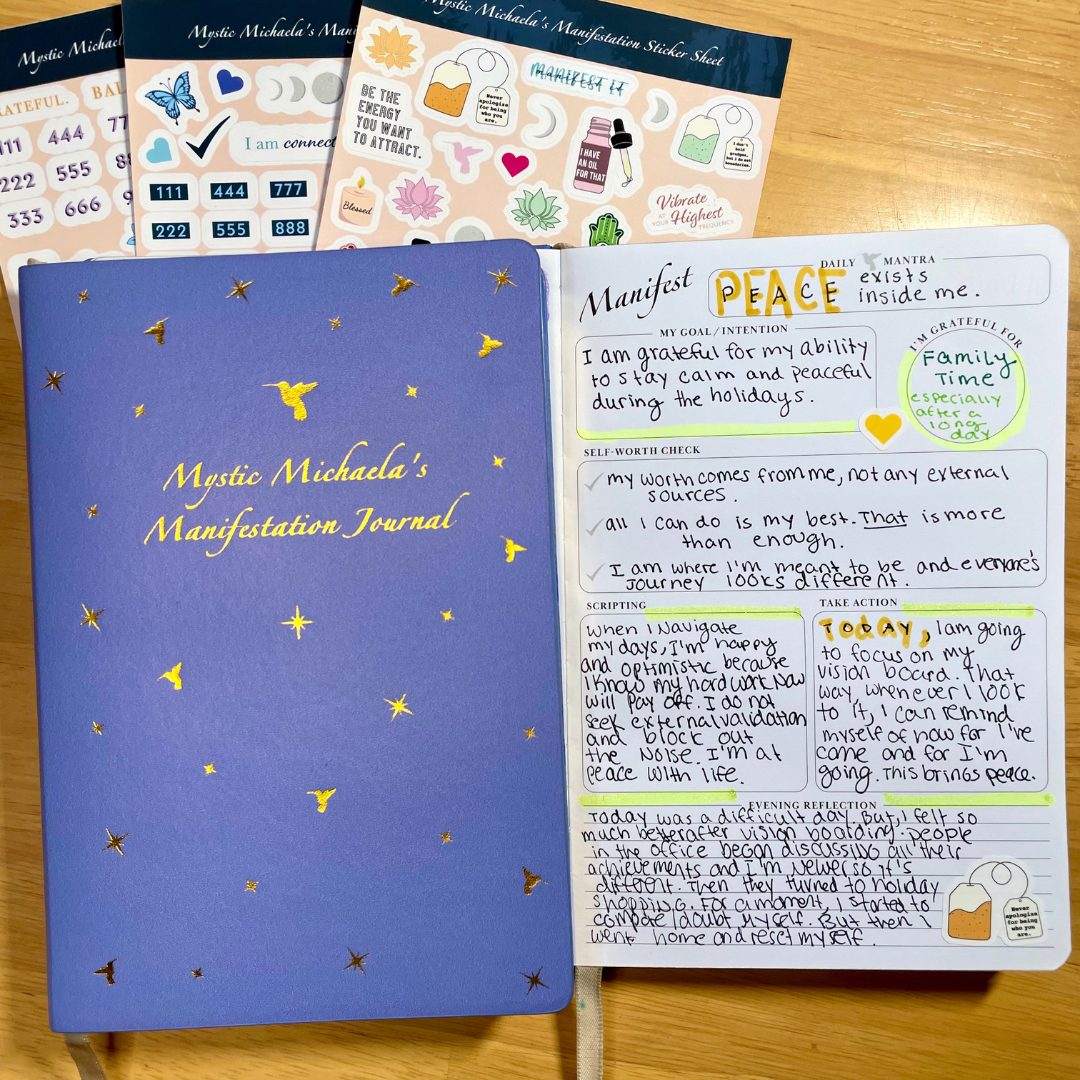 Mystic Michael
RATEFUL.
BAL
111
444
77
222
555
88
333
666
9
Mystic Michaela's Mani
I am connect
111 444 777
222 555 888
Mystic Michaela's Manifestation Sticker Sheet
MANIFEST IT
BE THE
ENERGY
YOU WANT
TO ATTRACT.
Never
apologize
for being
who you
are.
I HAVE
AN OIL
FOR THAT
I don't
hold
grudges,
but I do set
boundaries.
Blessed
Vibrate
AT YOUR
Highest
FREQUENCY
Mystic Michaela's
Manifestation Journal
Manifest
DAILY MANTRA
PEACE exists
inside me.
MY GOAL / INTENTION
I am grateful for my ability
to stay calm and peaceful
during the holidays.
I'M GRATEFUL FOR
Family
Time
especially
after a
long
day
SELF-WORTH CHECK
my worth comes from me, not any external
sources.
all I can do is my best. That is more
than enough.
I am where I'm meant to be and everyone's
journey looks different.
SCRIPTING
When I navigate
my days, I'm happy
and optimistic because
I know my hard work now
will pay off. I do not
seek external validation
and block out
the noise. I'm at
peace with life.
TAKE ACTION
TODAY, I am going
to focus on my
vision board. That
way, whenever I look
to it, I can remind
myself of how for I've
come and for I'm
going. This brings peace.
EVENING REFLECTION
Today was a difficult day. But, I felt so
much better after vision boarding. People
in the office began discussing all their
achievements and I'm newer so it's
different. Then they turned to holiday
shopping. For a moment, I started to
compare/doubt myself. But then I
went home and reset myself.
Never
apologize for
being
who you
are.